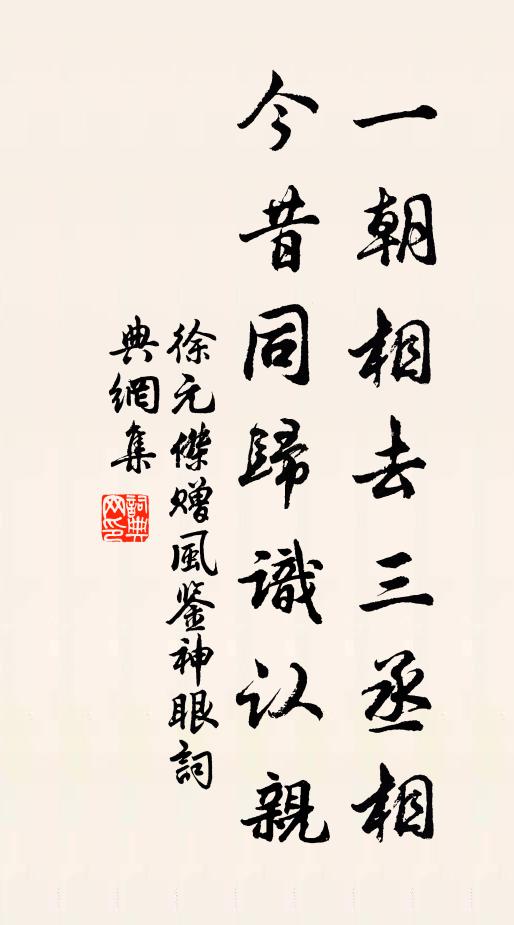 一朝相去三丞相
今昔同歸識认親
徐元傑赠風鉴神眼詞
典網集
詞典网印